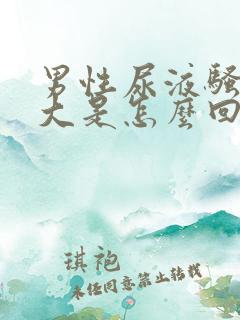 男性尿液骚
大是怎麼回
琪袍
未经同意禁止转载